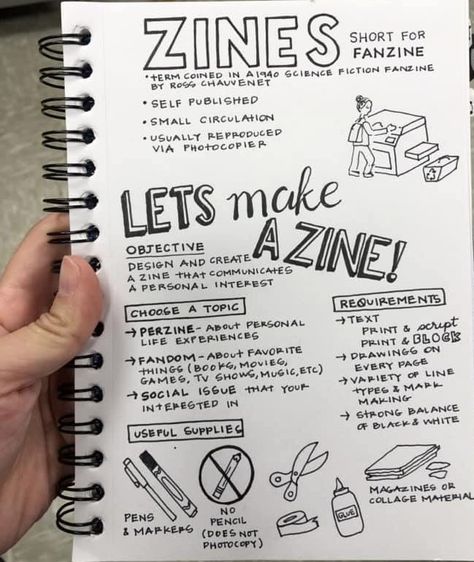 ZINES
SHORT FOR
FANZINE
• TERM COINED IN A 1940 SCIENCE FICTION FANZINE
BY ROSS CHAUVENET
• SELF PUBLISHED
• SMALL CIRCULATION
• USUALLY REPRODUCED
VIA PHOTOCOPIER
LETS make
A ZINE!
OBJECTIVE
DESIGN AND CREATE
A ZINE THAT COMMUNICATES
A PERSONAL INTEREST
CHOOSE A TOPIC
→ PERZINE - ABOUT PERSONAL
LIFE EXPERIENCES
→ FANDOM - ABOUT FAVORITE
THINGS (BOOKS, MOVIES,
GAMES, TV SHOWS, MUSIC, ETC)
→ SOCIAL ISSUE THAT YOUR
INTERESTED IN
REQUIREMENTS
→ TEXT
PRINT & script
PRINT & BLOCK
→ DRAWINGS ON
EVERY PAGE
→ VARIETY OF LINE
TYPES & MARK
MAKING
→ STRONG BALANCE
OF BLACK & WHITE
USEFUL SUPPLIES
PENS
& MARKERS
NO
PENCIL
(DOES NOT
PHOTOCOPY)
GLUE
MAGAZINES OR
COLLAGE MATERIAL